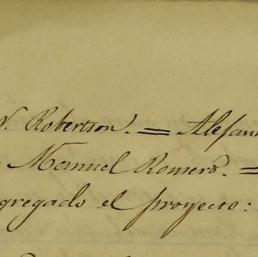 V. Robertson. = Alejan
Manuel Romero. =
gregado el proyecto: